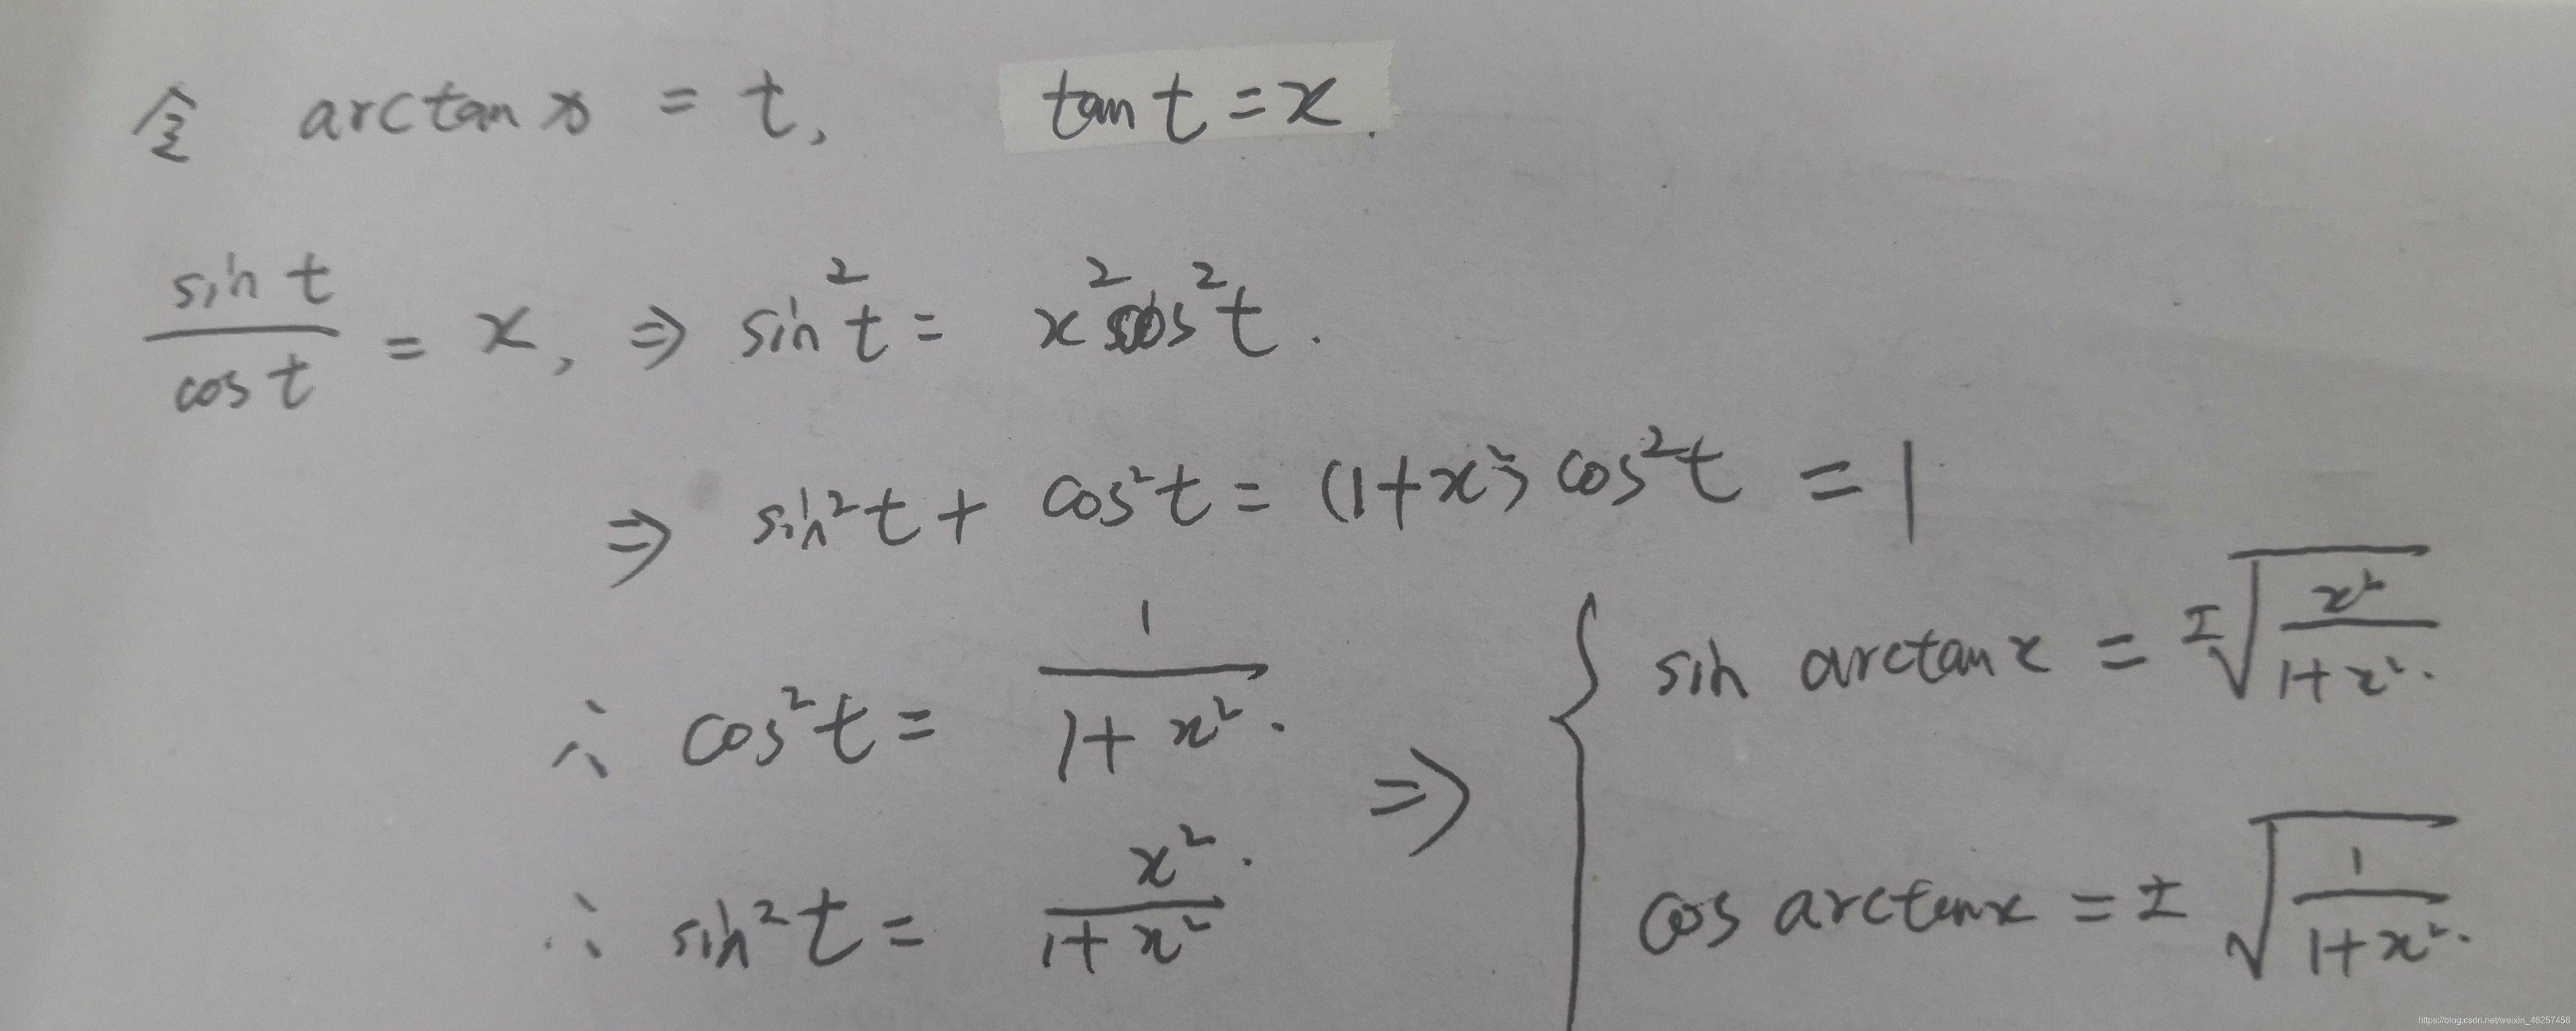 令 arctan x = t, tan t = x.
sin t / cos t = x, ⇒ sin²t = x²cos²t.
⇒ sin²t + cos²t = (1+x²) cos²t = 1
∴ cos²t = 1 / (1+x²).
∴ sin²t = x² / (1+x²)
⇒ { sin arctan x = ±√(x² / (1+x²)).
cos arctan x = ±√(1 / (1+x²)).
https://blog.csdn.net/weixin_46257458